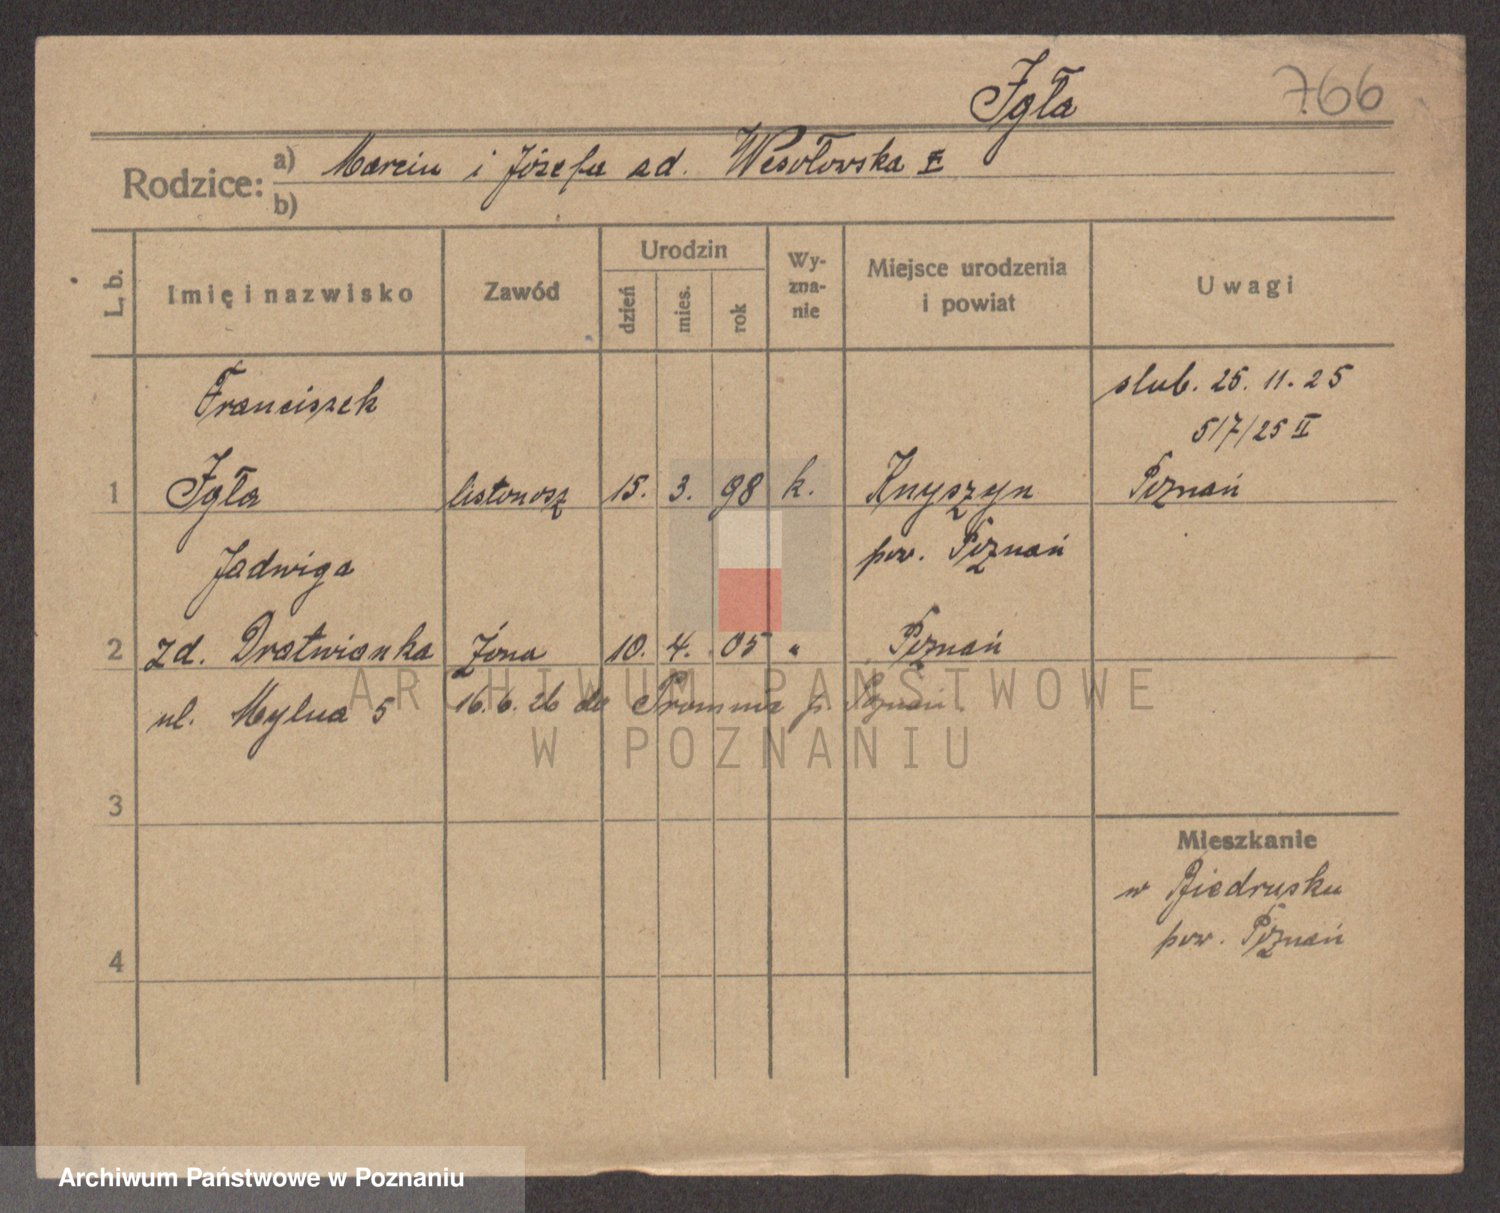 Igła
766
Rodzice: a) Marcin i Józefa zd. Wesołowska
b)
L. b.
Imię i nazwisko
Zawód
Urodzin
dzień
mies.
rok
Wy-
zna-
nie
Miejsce urodzenia
i powiat
Uwagi
Franciszek
slub. 25. 11. 25
517/25 II
1 Igła listonosz 15. 3. 98 k. Knyszyn Poznań
Jadwiga pow. Poznań
2 zd. Dratwianka żona 10. 4. 05 " Poznań
ul. Mylna 5 16. 6. 26 do p. Poznań
3
Mieszkanie
w Biedrusku
pow. Poznań
4
ARCHIWUM PAŃSTWOWE
W POZNANIU
Archiwum Państwowe w Poznaniu